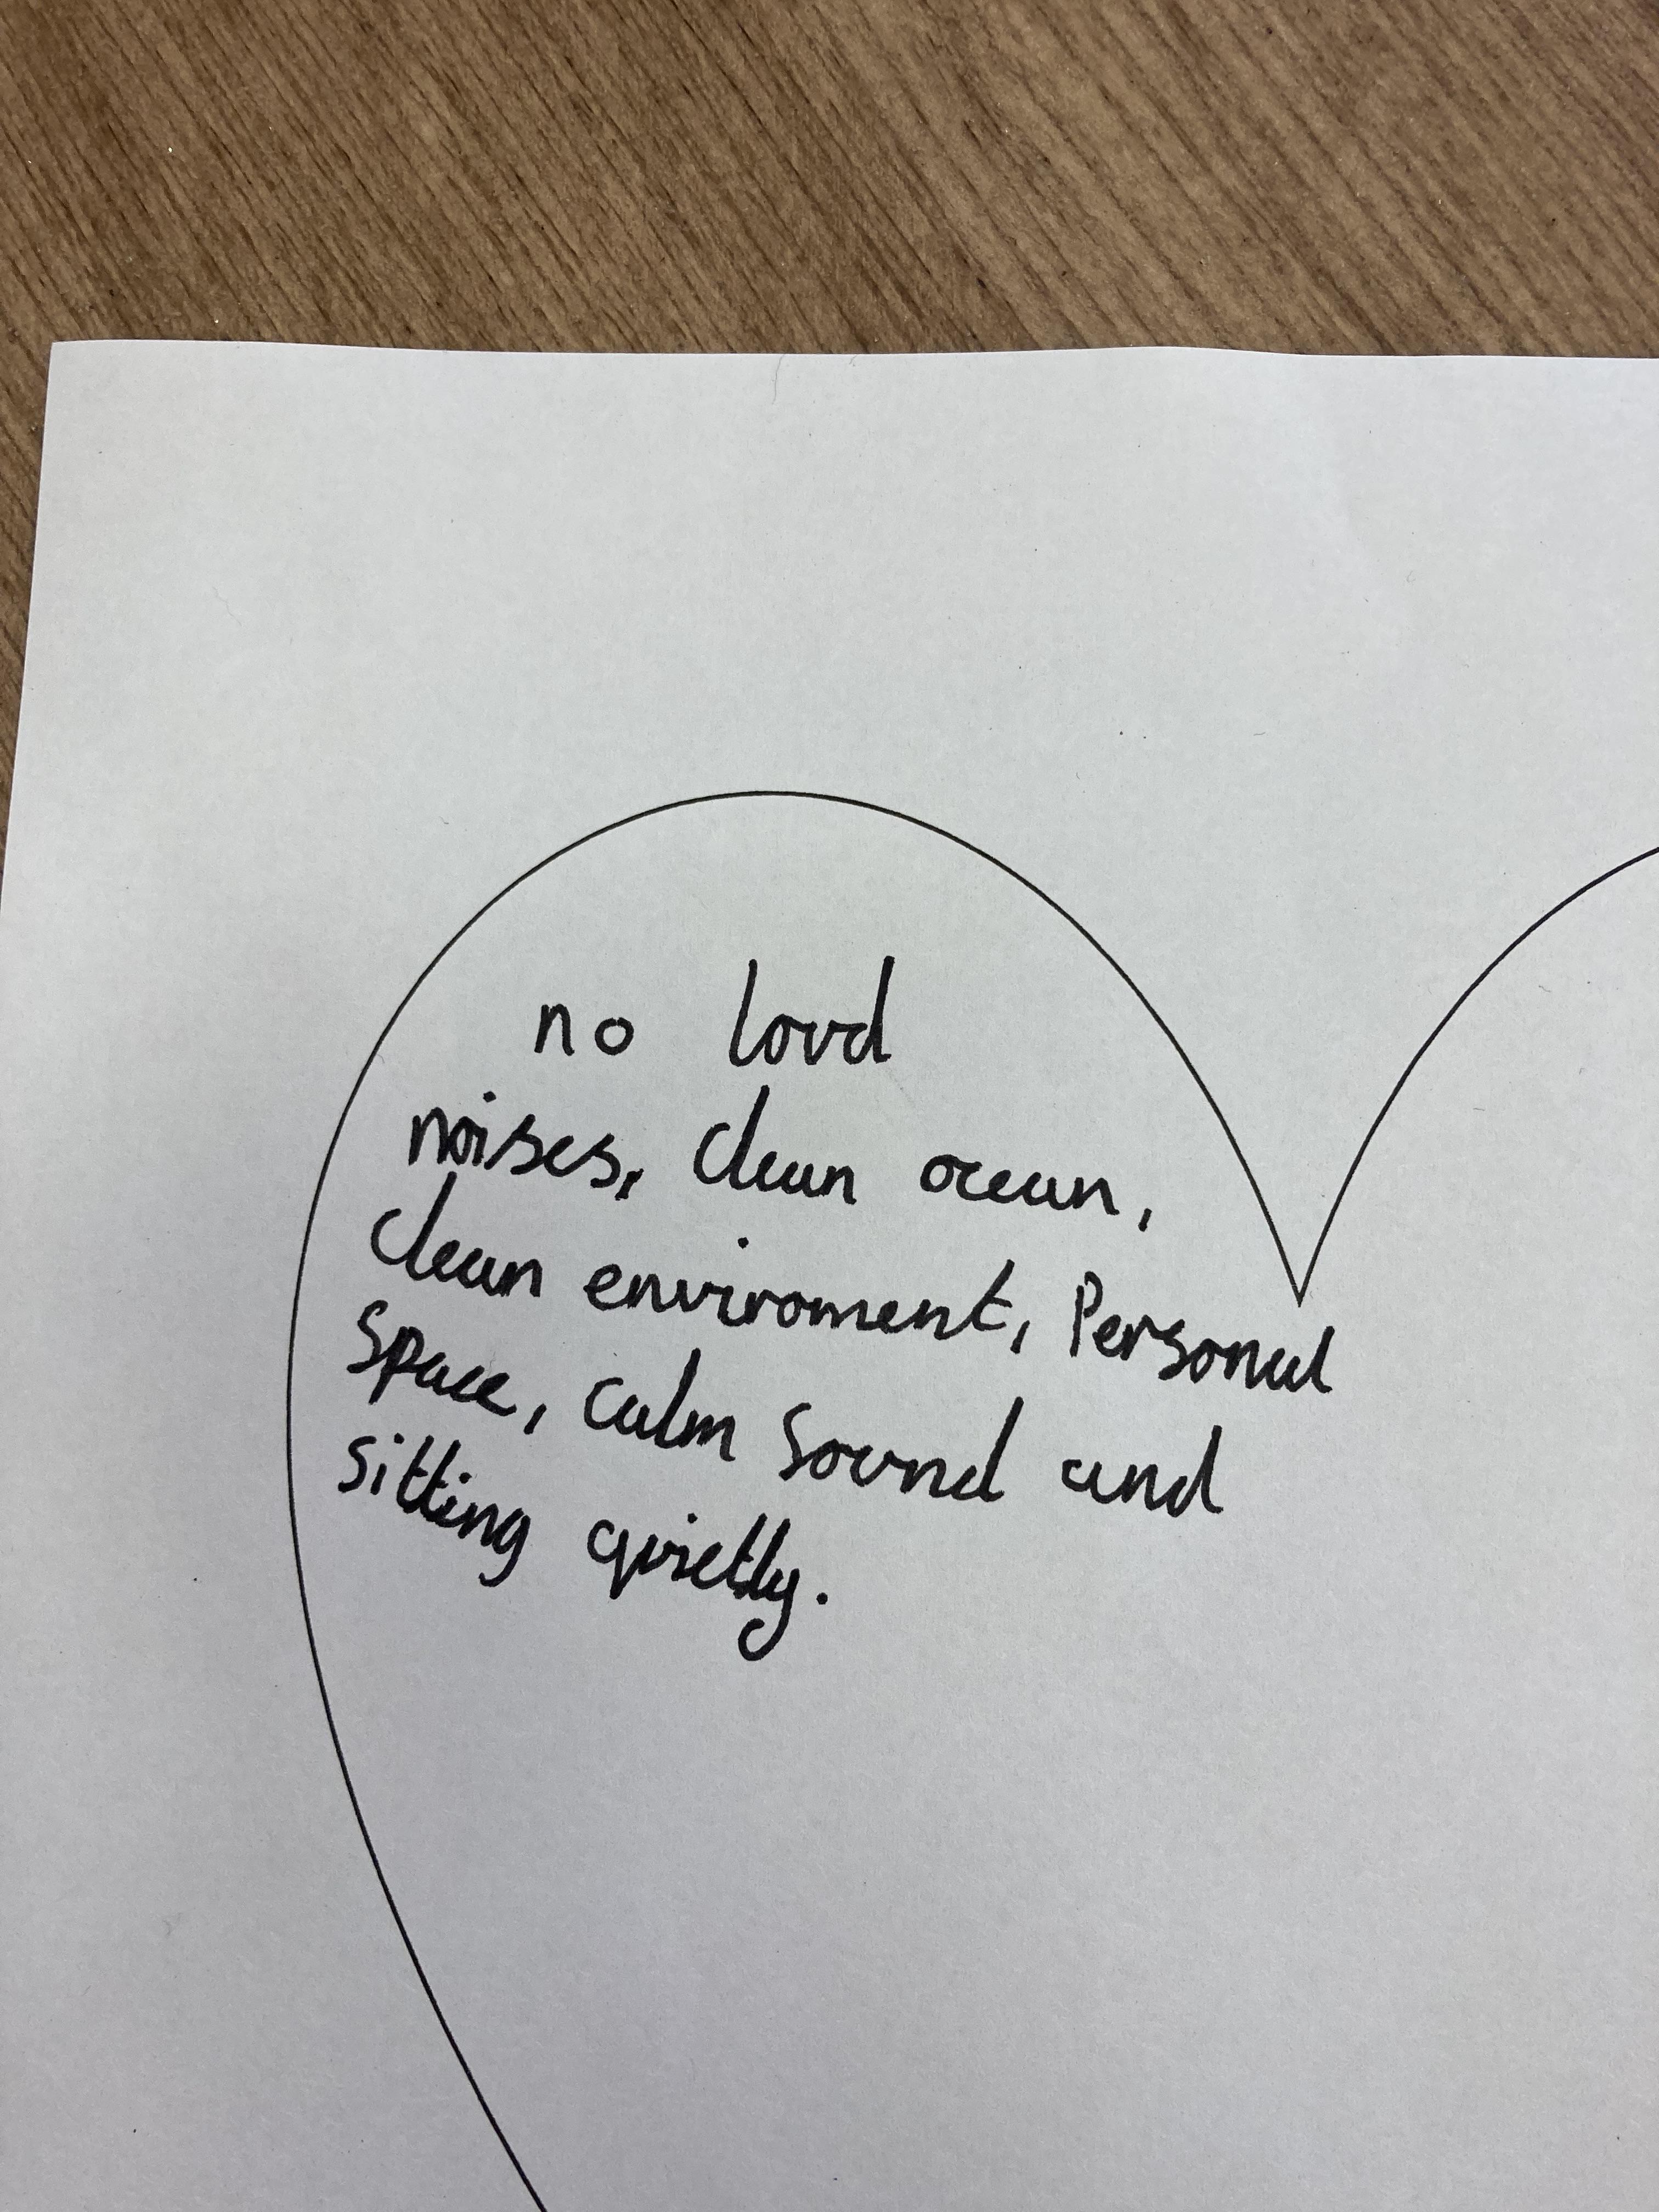 no loud
noises, clean ocean,
clean enviroment, Personal
space, calm sound and
sitting quietly.